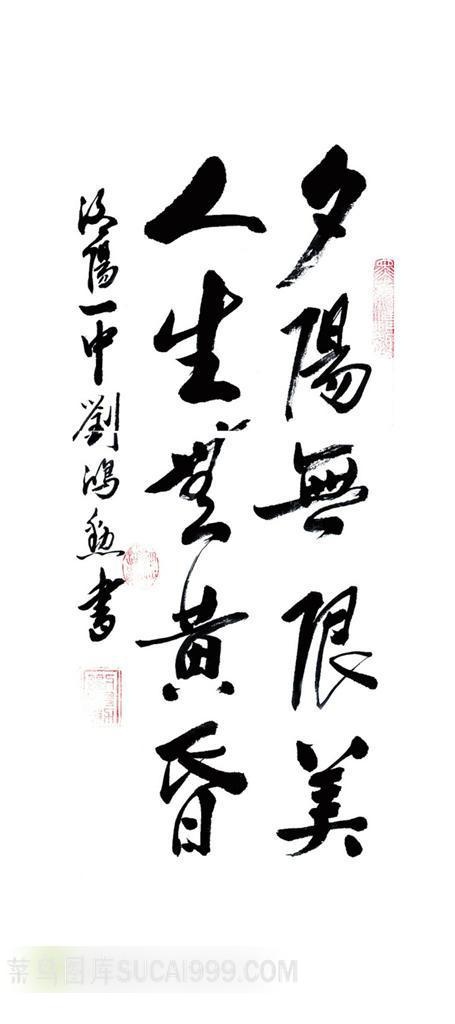 夕陽無限美
人生無黄昏
陽一中劉鴻勳書
菜鸟图库SUCAI999.COM